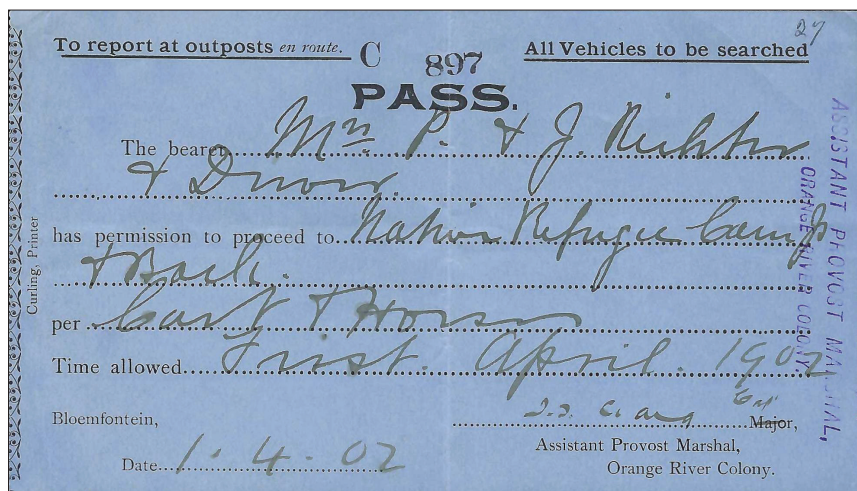 27
To report at outposts en route. C 897 All Vehicles to be searched
PASS.
The bearer Mrs P. & J. Richter
& Driver.
has permission to proceed to Native Refugee Camp
& Back.
per Cart & Horses
Time allowed First. April. 1902
Bloemfontein,
Major,
Assistant Provost Marshal,
Orange River Colony.
Date 1.4.02
Curling, Printer
ASSISTANT PROVOST MARSHAL,
ORANGE RIVER COLONY.